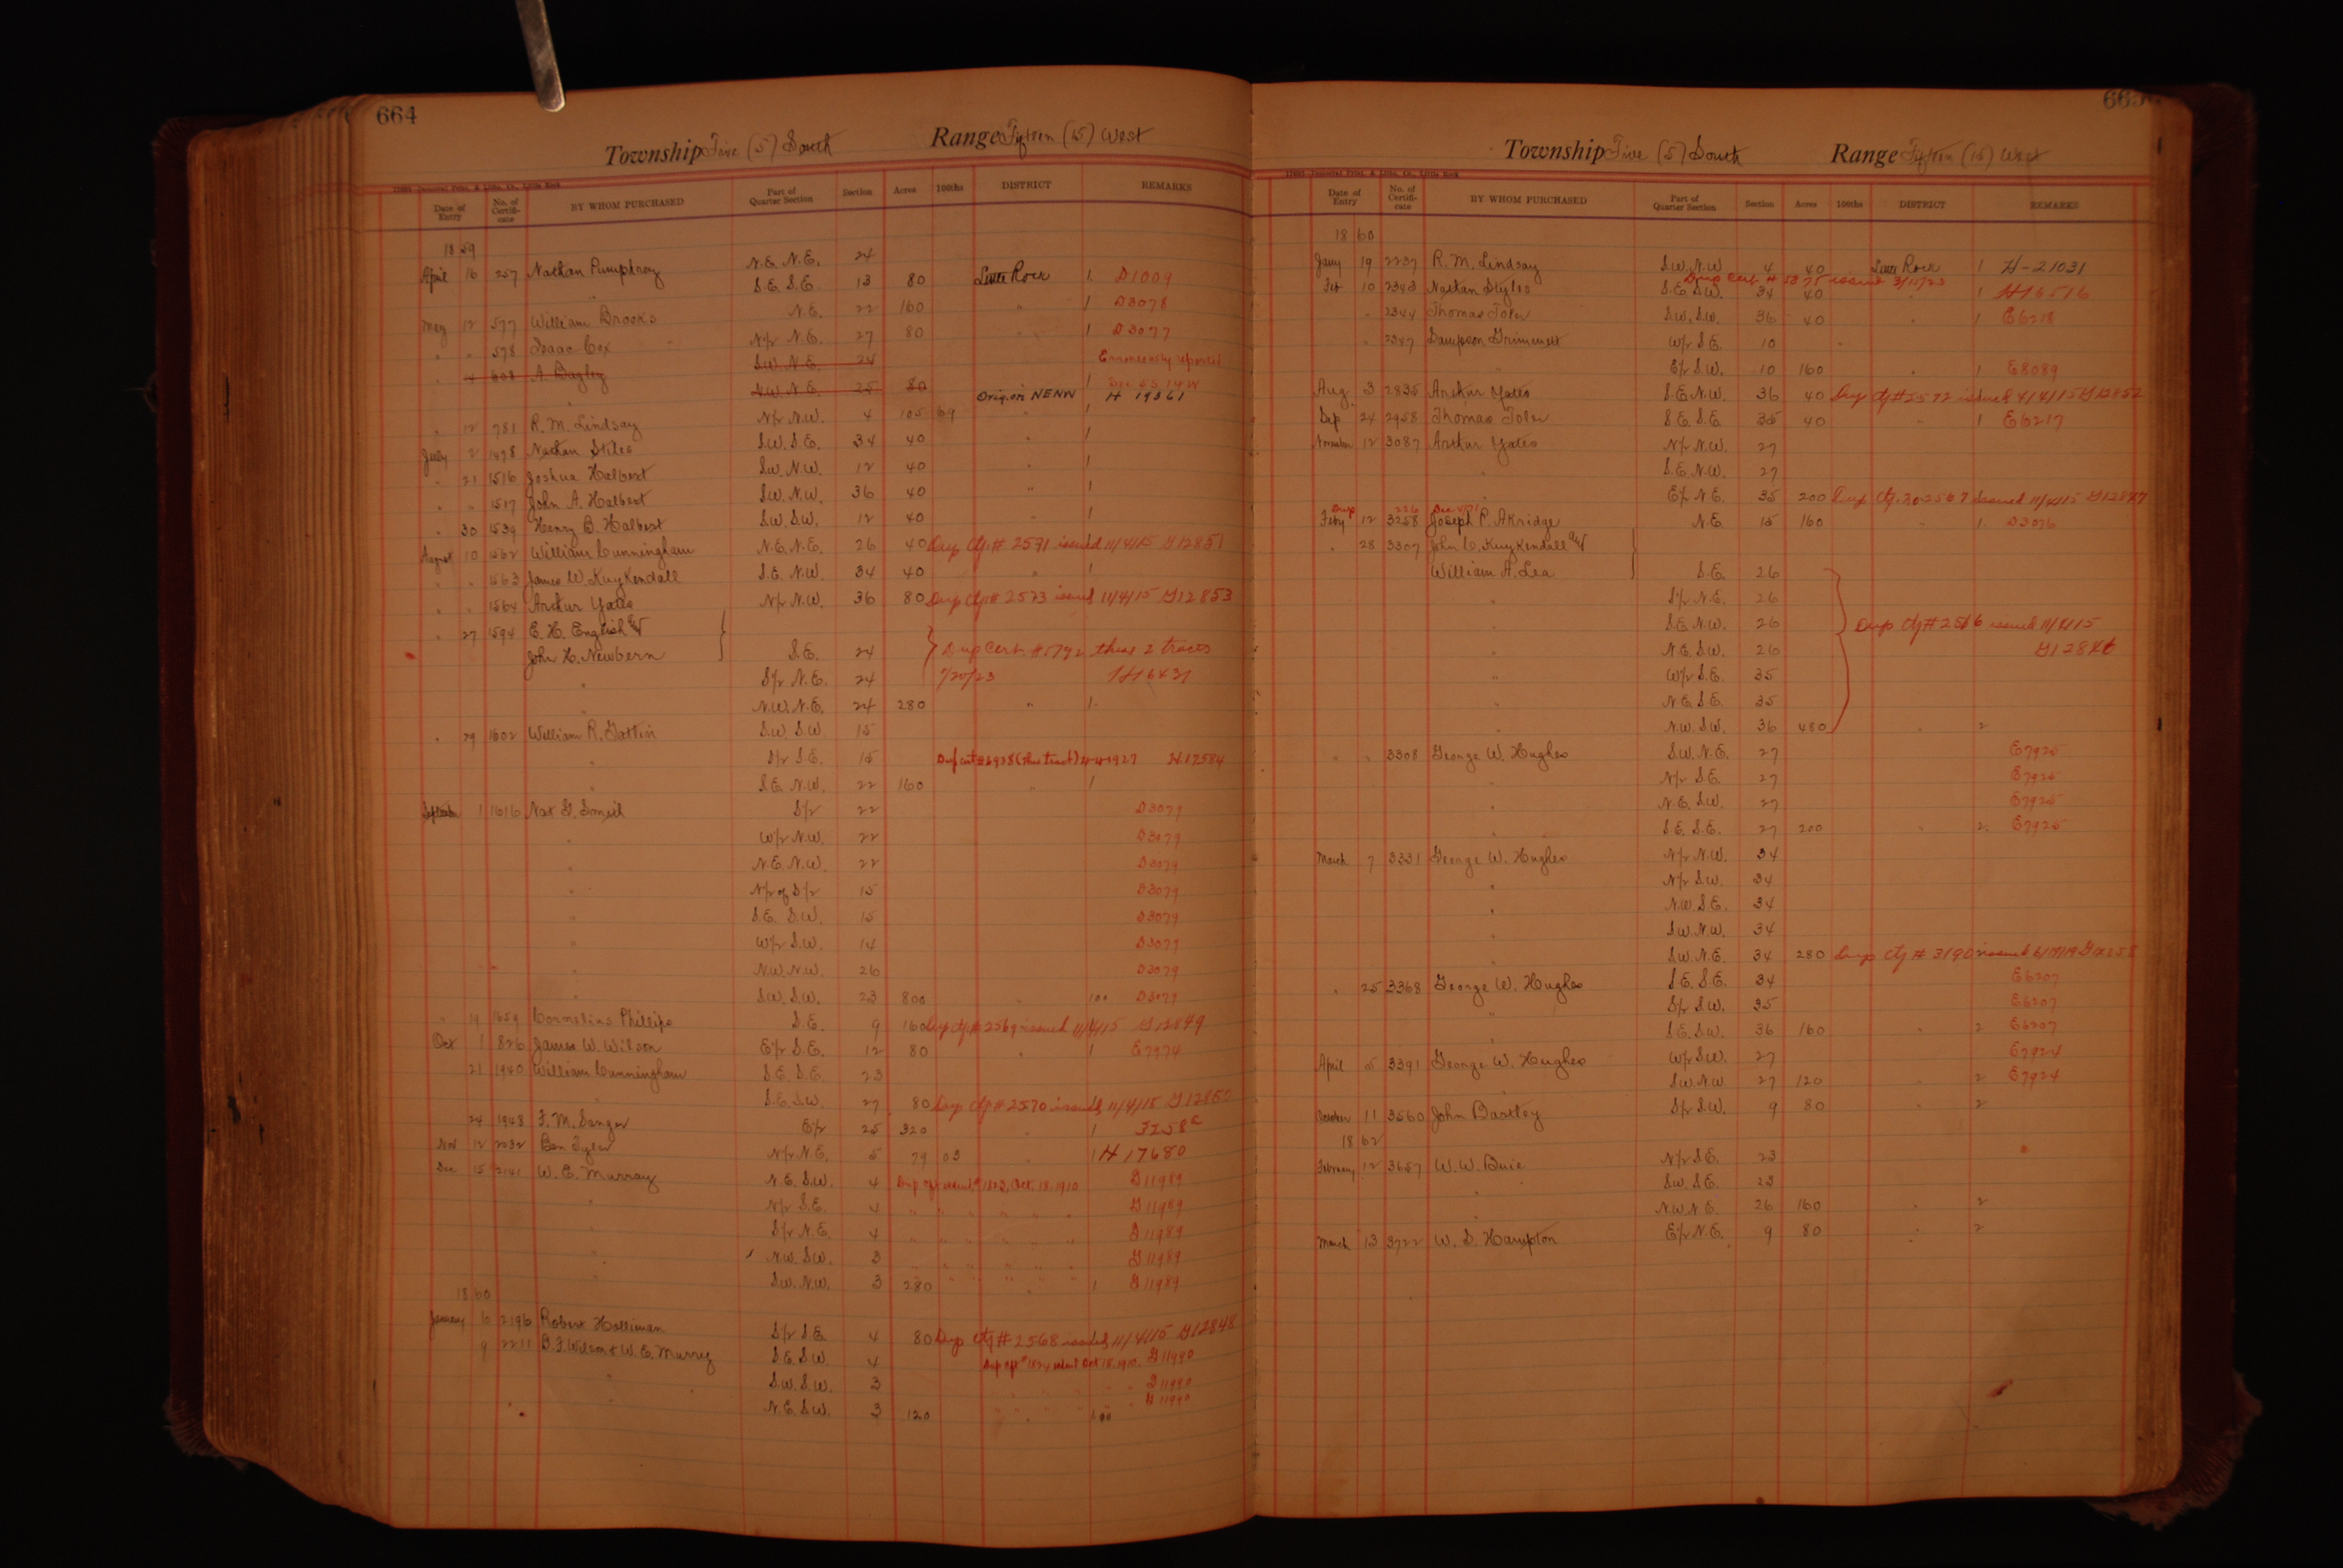 664
Township Five (5) South Range Fifteen (15) West
Date of Entry No. of Certifi-cate BY WHOM PURCHASED Part of Quarter Section Section Acres 100ths DISTRICT REMARKS
1859
April 16 257 Nathan Pumphrey N.E. N.E. 24
S.E. S.E. 13 80 Little Rock 1 D1009
May 12 577 William Brooks N.E. 22 160 " 1 D3078
" " 578 Isaac Cox N/2 N.E. 27 80 " 1 D3077
" 4 608 A. Bagley S.W. N.E. 24 Erroneously reported
N.W. N.E. 25 80 " 1 Sec 25 5S 14W
Orig. on NENW H 19361
" 12 781 R. M. Lindsay N/2 N.W. 4 105 69 " 1
July 2 1478 Nathan Stiles S.W. S.E. 34 40 " 1
" 21 1516 Joshua Halbert S.W. N.W. 12 40 " 1
" " 1517 John A. Halbert S.W. N.W. 36 40 " 1
" 30 1539 Henry B. Halbert S.W. S.W. 12 40 " 1
August 10 1562 William Cunningham N.E. N.E. 26 40 Dup Ctf. # 2571 issued 11/4/15 G12851
" " 1563 James W. Kuykendall S.E. N.W. 34 40 " 1
" " 1564 Arthur Yates N/2 N.W. 36 80 Dup Ctf # 2573 issued 11/4/15 G12853
" 27 1594 E. H. English and
John H. Newbern S.E. 24 Dup Cert. #5792 these 2 tracts
" S/2 N.E. 24 7/20/23 H16431
" N.W. N.E. 24 280 " 1
" 29 1602 William R. Gattin S.W. S.W. 15
" S/2 S.E. 15 Dup cert #6938 (this tract) 4-4-1927 H.17584
" S.E. N.W. 22 160 " 1
September 1 1616 Nat G. Smith S/2 22 D3079
" W/2 N.W. 22 D3079
" N.E. N.W. 22 D3079
" N/2 of S/2 15 D3079
" S.E. S.W. 15 D3079
" W/2 S.W. 14 D3079
" N.W. N.W. 26 D3079
" S.W. S.W. 23 800 " 100 D3079
" 19 1659 Cornelius Phillips S.E. 9 160 Dup Ctf # 2569 issued 11/4/15 G12849
Oct 1 826 James W. Wilson E/2 S.E. 12 80 " 1 E7974
21 1940 William Cunningham S.E. S.E. 23
" S.E. S.W. 27 80 Dup Ctf # 2570 issued 11/4/15 G12850
24 1948 F. M. Sanger E/2 25 320 " 1
Nov 12 2032 Ben Tyler N/2 N.E. 5 79 03 " 1 H 17680
Dec 15 2141 W. E. Murray N.E. S.W. 4 Oct. 18. 1910 G11989
" N/2 S.E. 4 " " " " " " G11989
" S/2 N.E. 4 " " " " " " G11989
" N.W. S.W. 3 " " " " " " G11989
" S.W. N.W. 3 280 " 1 G11989
1860
January 6 2196 Robert Holliman S/2 S.E. 4 80 Dup Ctf # 2568 issued 11/4/15 G12848
9 2211 B. F. Wilson & W. E. Murray S.E. S.W. 4 Oct 18. 1910. G11990
" S.W. S.W. 3 G11990
" N.E. S.W. 3 120 100 G11990
665
Township Five (5) South Range Fifteen (15) West
Date of Entry No. of Certifi-cate BY WHOM PURCHASED Part of Quarter Section Section Acres 100ths DISTRICT REMARKS
1860
Jany 19 2237 R. M. Lindsay S.W. N.W. 4 40 Little Rock 1 H-21031
Dup Cert # 5375 issued 3/15/23
Feb 10 2343 Nathan Styles S.E. S.W. 34 40 " 1 H16516
" 2344 Thomas Toler S.W. S.W. 36 40 " 1 E6218
" 2347 Sampson Grimmett W/2 S.E. 10 "
" E/2 S.W. 10 160 " 1 E8089
Aug 3 2835 Arthur Yates S.E. N.W. 36 40 Dup Ctf # 2572 issued 11/4/15 G12852
Sep 24 2958 Thomas Toler S.E. S.E. 35 40 " 1 E6217
November 12 3087 Arthur Yates N/2 N.W. 27
" S.E. N.W. 27
" E/2 N.E. 35 200 Dup Ctf. No 2567 issued 11/4/15 G12847
Dup 226 Dec 4/71
Feby 12 3258 Joseph P. Akridge N.E. 15 160 " 1 D3076
" 28 3307 John C. Kuykendall and
William A. Lea S.E. 26
" S/2 N.E. 26
" S.E. N.W. 26 Dup Ctf # 2566 issued 11/4/15
" N.E. S.W. 26 G12846
" W/2 S.E. 35
" N.E. S.E. 35
" N.W. S.W. 36 480 " 2
" " 3308 George W. Hughes S.W. N.E. 27 E7925
" N/2 S.E. 27 E7925
" N.E. S.W. 27 E7925
" S.E. S.E. 27 200 " 2 E7925
March 7 3331 George W. Hughes N/2 N.W. 34
" N/2 S.W. 34
" N.W. S.E. 34
" S.W. N.W. 34
" S.W. N.E. 34 280 Dup Ctf # 3190 issued
" 25 3368 George W. Hughes S.E. S.E. 34 E6207
" S/2 S.W. 35 E6207
" S.E. S.W. 36 160 " 2 E6207
April 5 3391 George W. Hughes W/2 S.W. 27 E7924
" S.W. N.W 27 120 " 2 E7924
October 11 3560 John Bartley S/2 S.W. 9 80 " 2
1862
February 12 3657 W. W. Buie N/2 S.E. 23
" S.W. S.E. 23
" N.W. N.E. 26 160 " 2
March 13 3722 W. S. Hampton E/2 N.E. 9 80 " 2